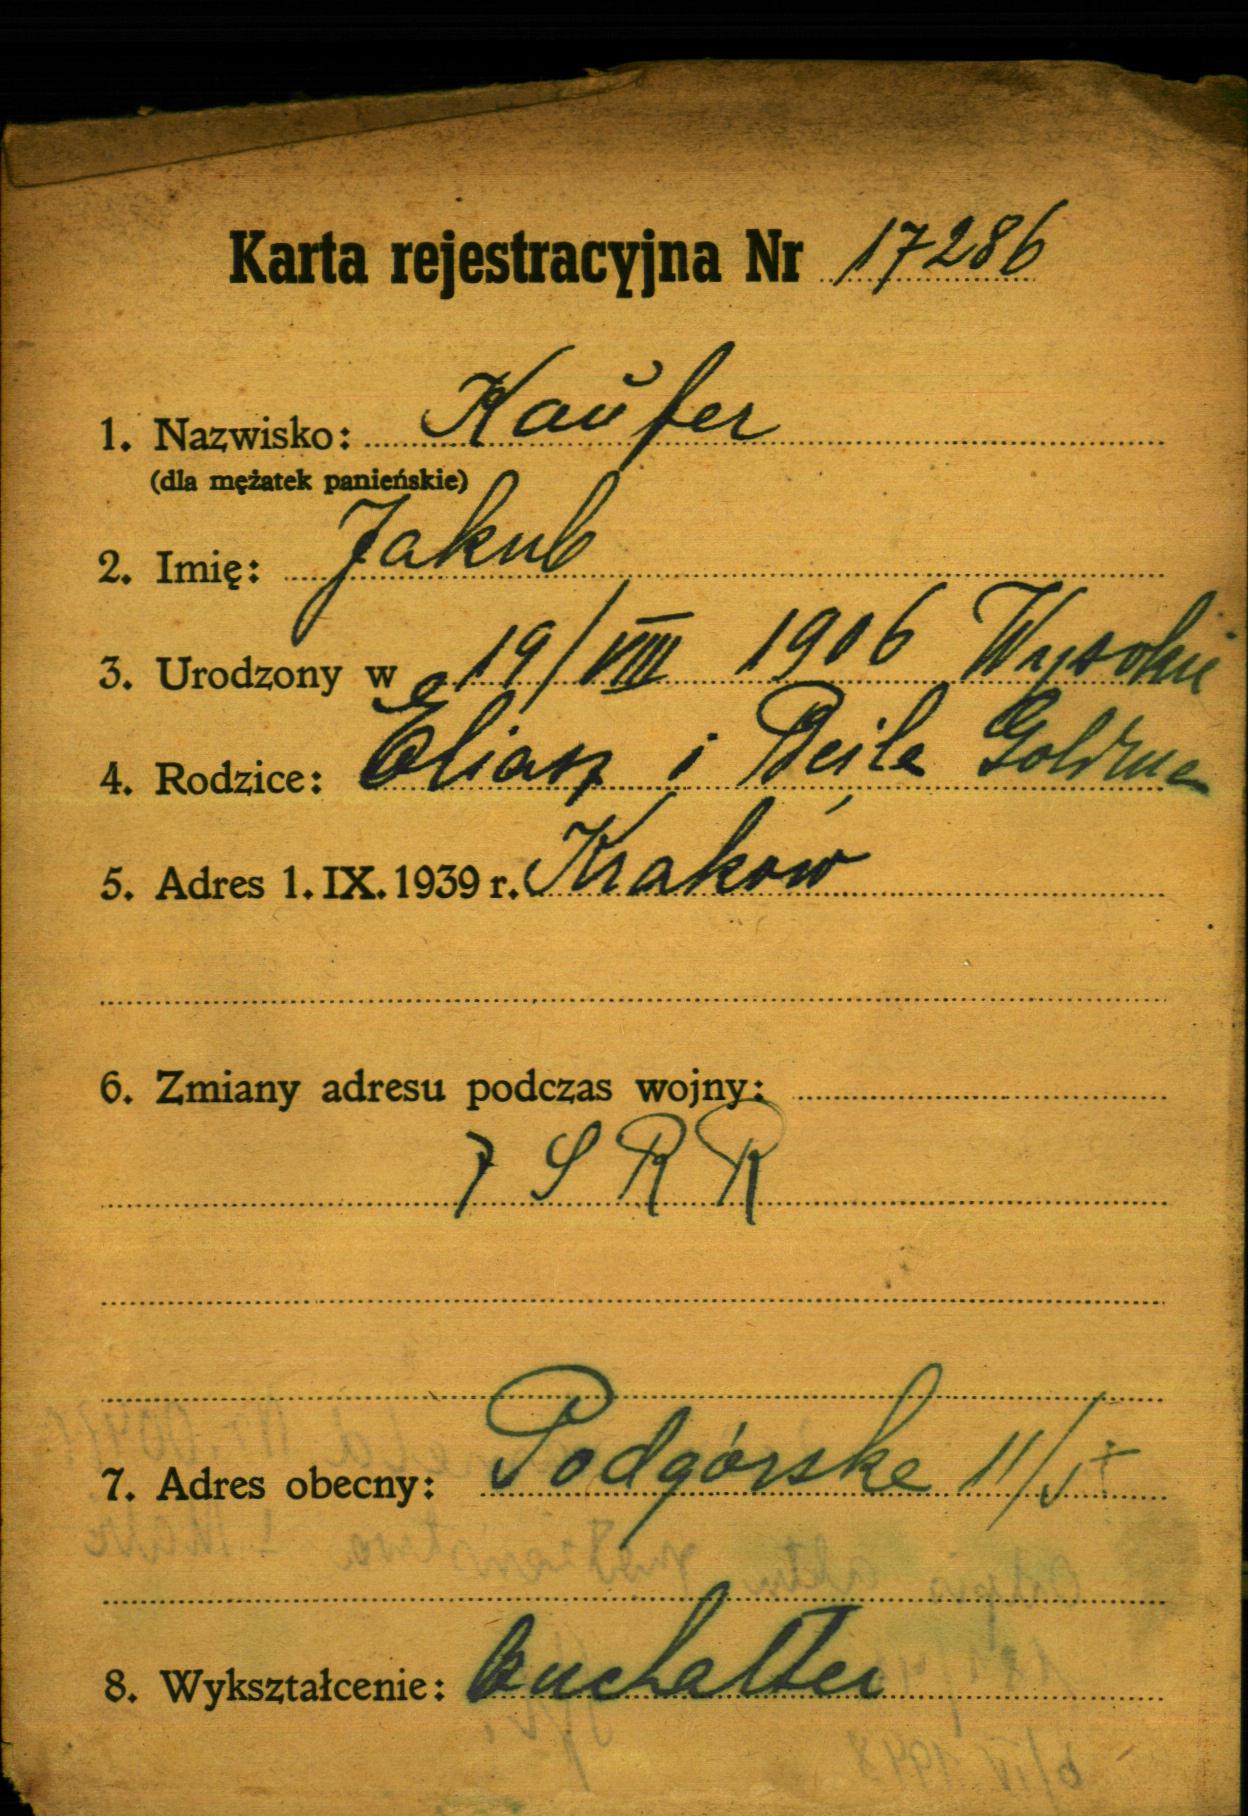 Karta rejestracyjna Nr 17286
1. Nazwisko: Kaufer
(dla mężatek panieńskie)
2. Imię: Jakub
3. Urodzony w 19/VIII 1906 Wysokie
4. Rodzice: Eliasz i Beila
5. Adres 1. IX. 1939 r. Kraków
6. Zmiany adresu podczas wojny:
SRR
7. Adres obecny: Podgórska 11/
8. Wykształcenie: buchalter